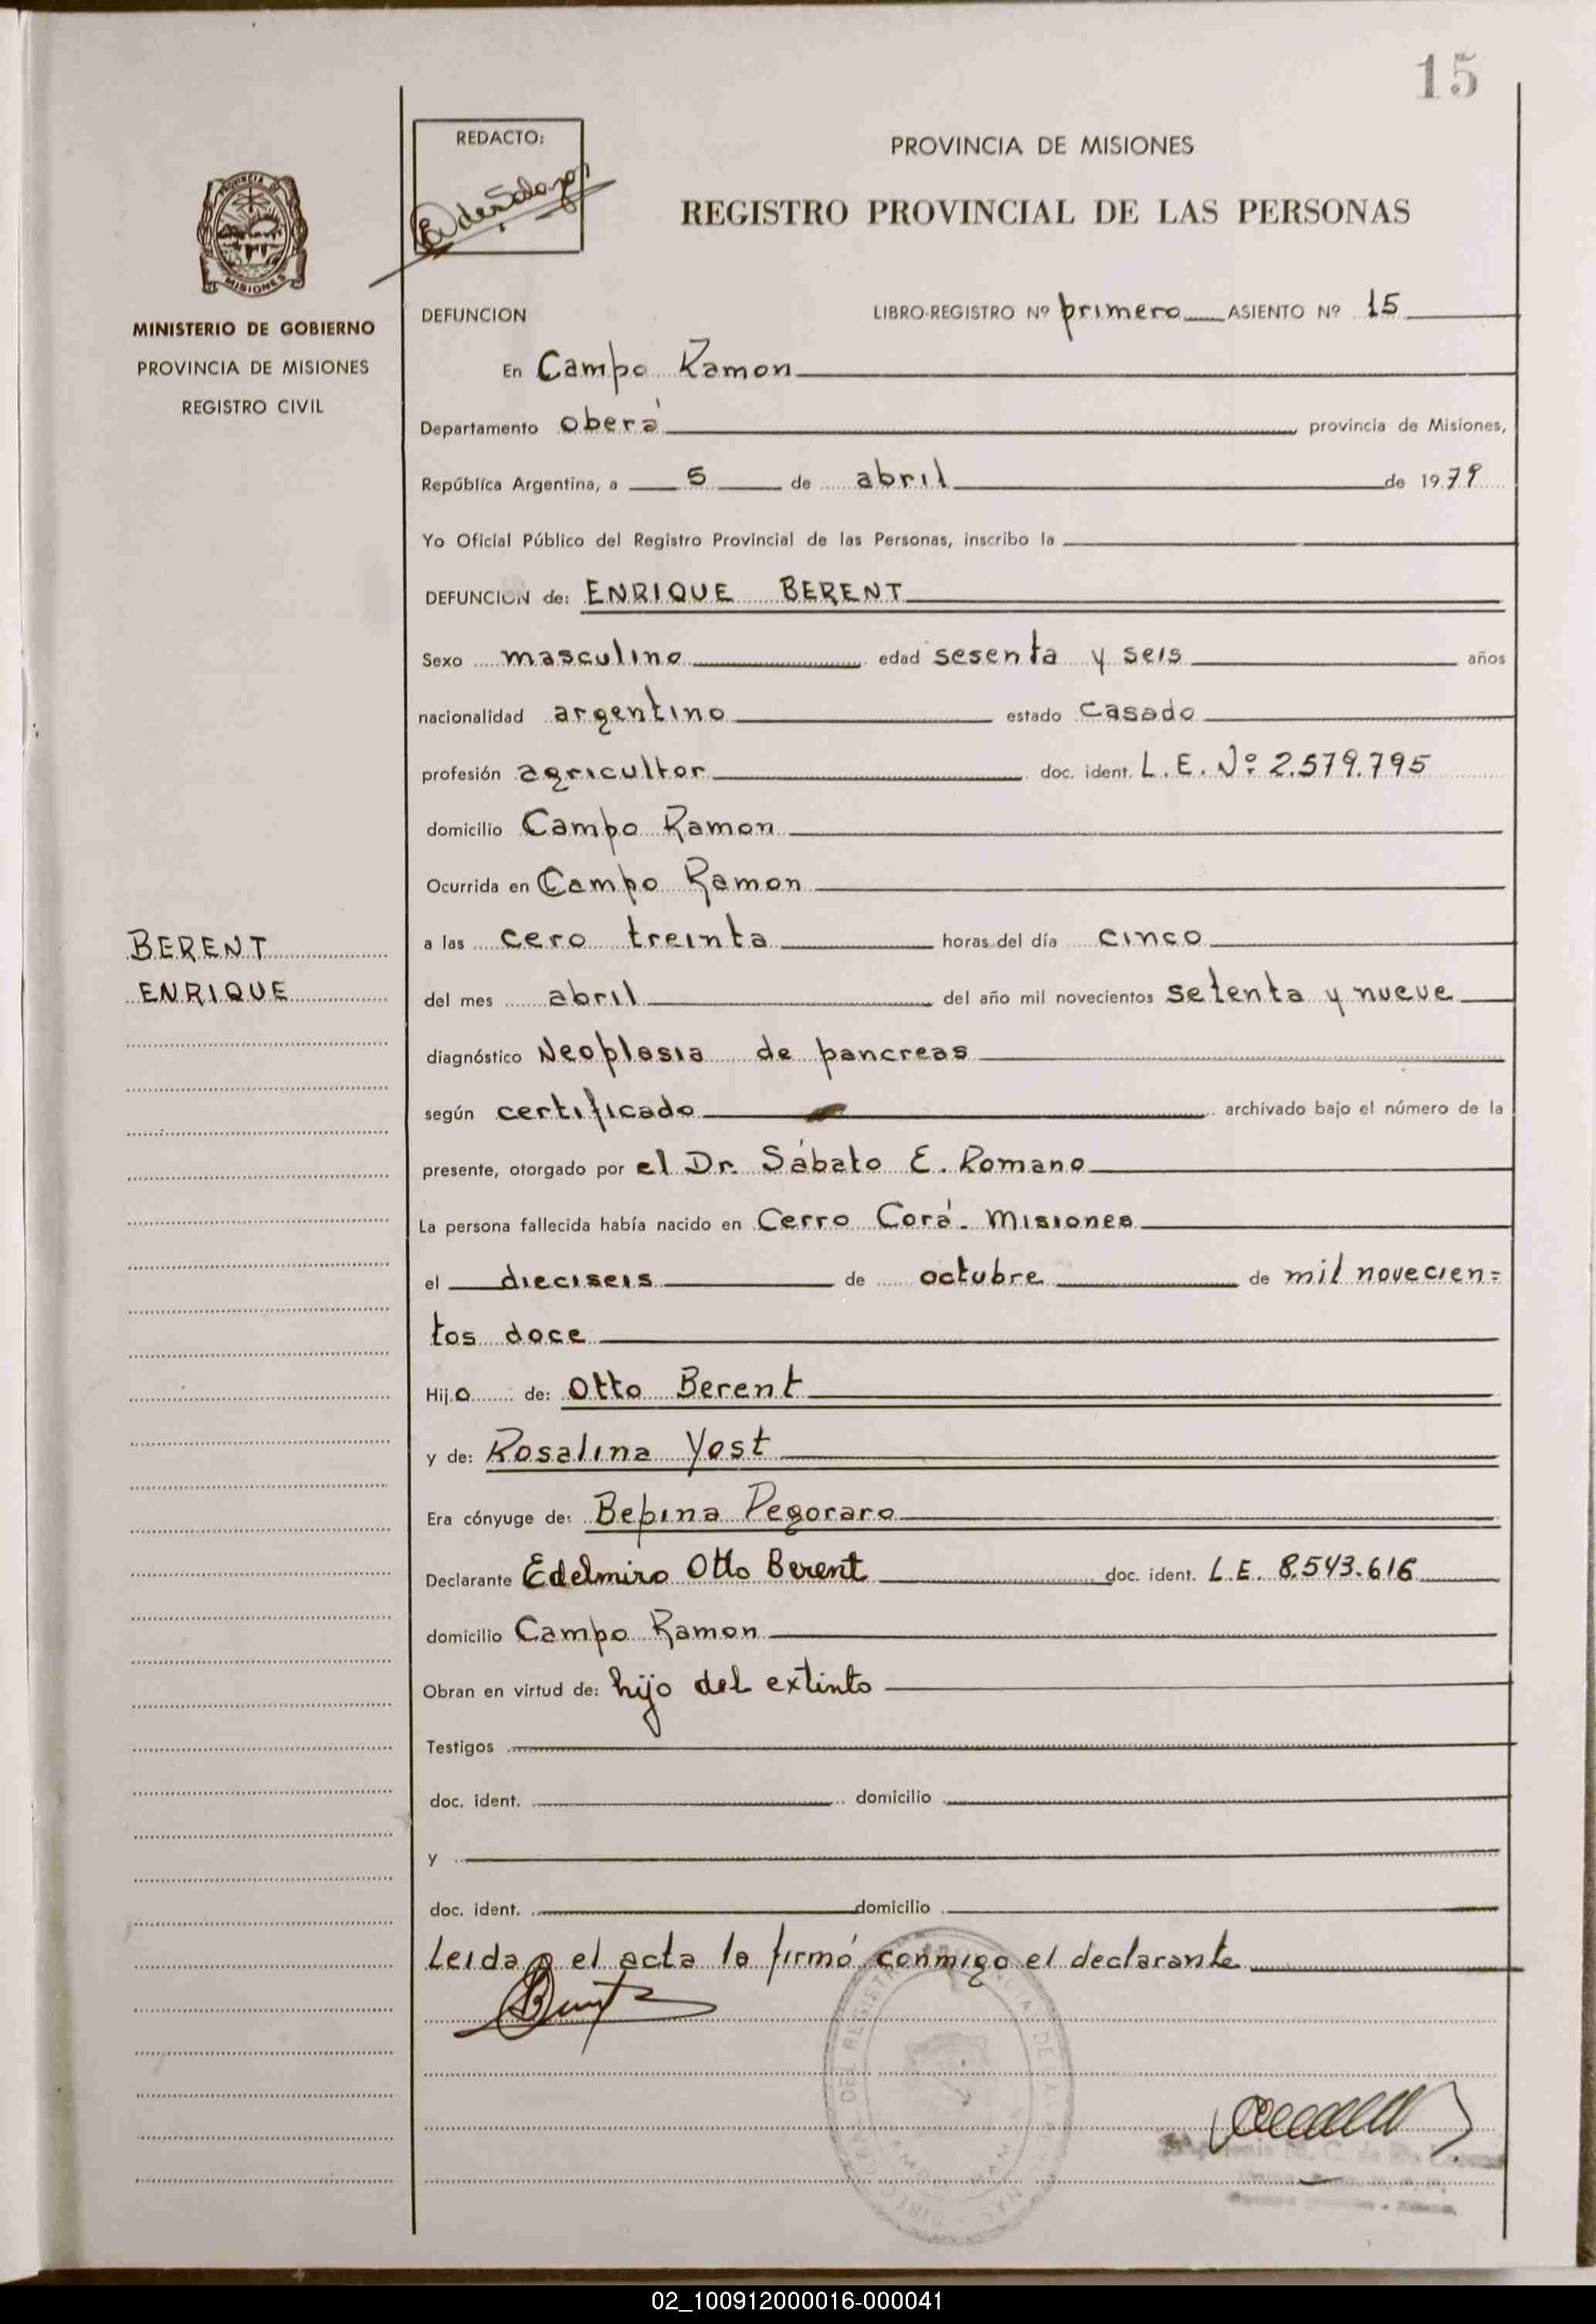 15
REDACTO:
PROVINCIA DE MISIONES
REGISTRO PROVINCIAL DE LAS PERSONAS
PROVINCIA DE
MISIONES
MINISTERIO DE GOBIERNO
PROVINCIA DE MISIONES
REGISTRO CIVIL
DEFUNCION LIBRO-REGISTRO Nº primero ASIENTO Nº 15
En Campo Ramon
Departamento oberá provincia de Misiones,
República Argentina, a 5 de abril de 1979
Yo Oficial Público del Registro Provincial de las Personas, inscribo la
DEFUNCION de: ENRIQUE BERENT
Sexo masculino edad sesenta y seis años
nacionalidad argentino estado casado
profesión agricultor doc. ident. L.E. Nº 2.579.795
domicilio Campo Ramon
Ocurrida en Campo Ramon
BERENT
ENRIQUE
a las cero treinta horas del día cinco
del mes abril del año mil novecientos setenta y nueve
diagnóstico Neoplasia de pancreas
según certificado archivado bajo el número de la
presente, otorgado por el Dr. Sábato E. Romano
La persona fallecida había nacido en Cerro Corá - Misiones
el dieciseis de octubre de mil novecien=
tos doce
Hijo de: Otto Berent
y de: Rosalina Yost
Era cónyuge de: Bepina Pegoraro
Declarante Edelmiro Otto Berent doc. ident. L.E. 8.543.616
domicilio Campo Ramon
Obran en virtud de: hijo del extinto
Testigos
doc. ident. domicilio
y
doc. ident. domicilio
Leida el acta la firmó conmigo el declarante
02_100912000016-000041